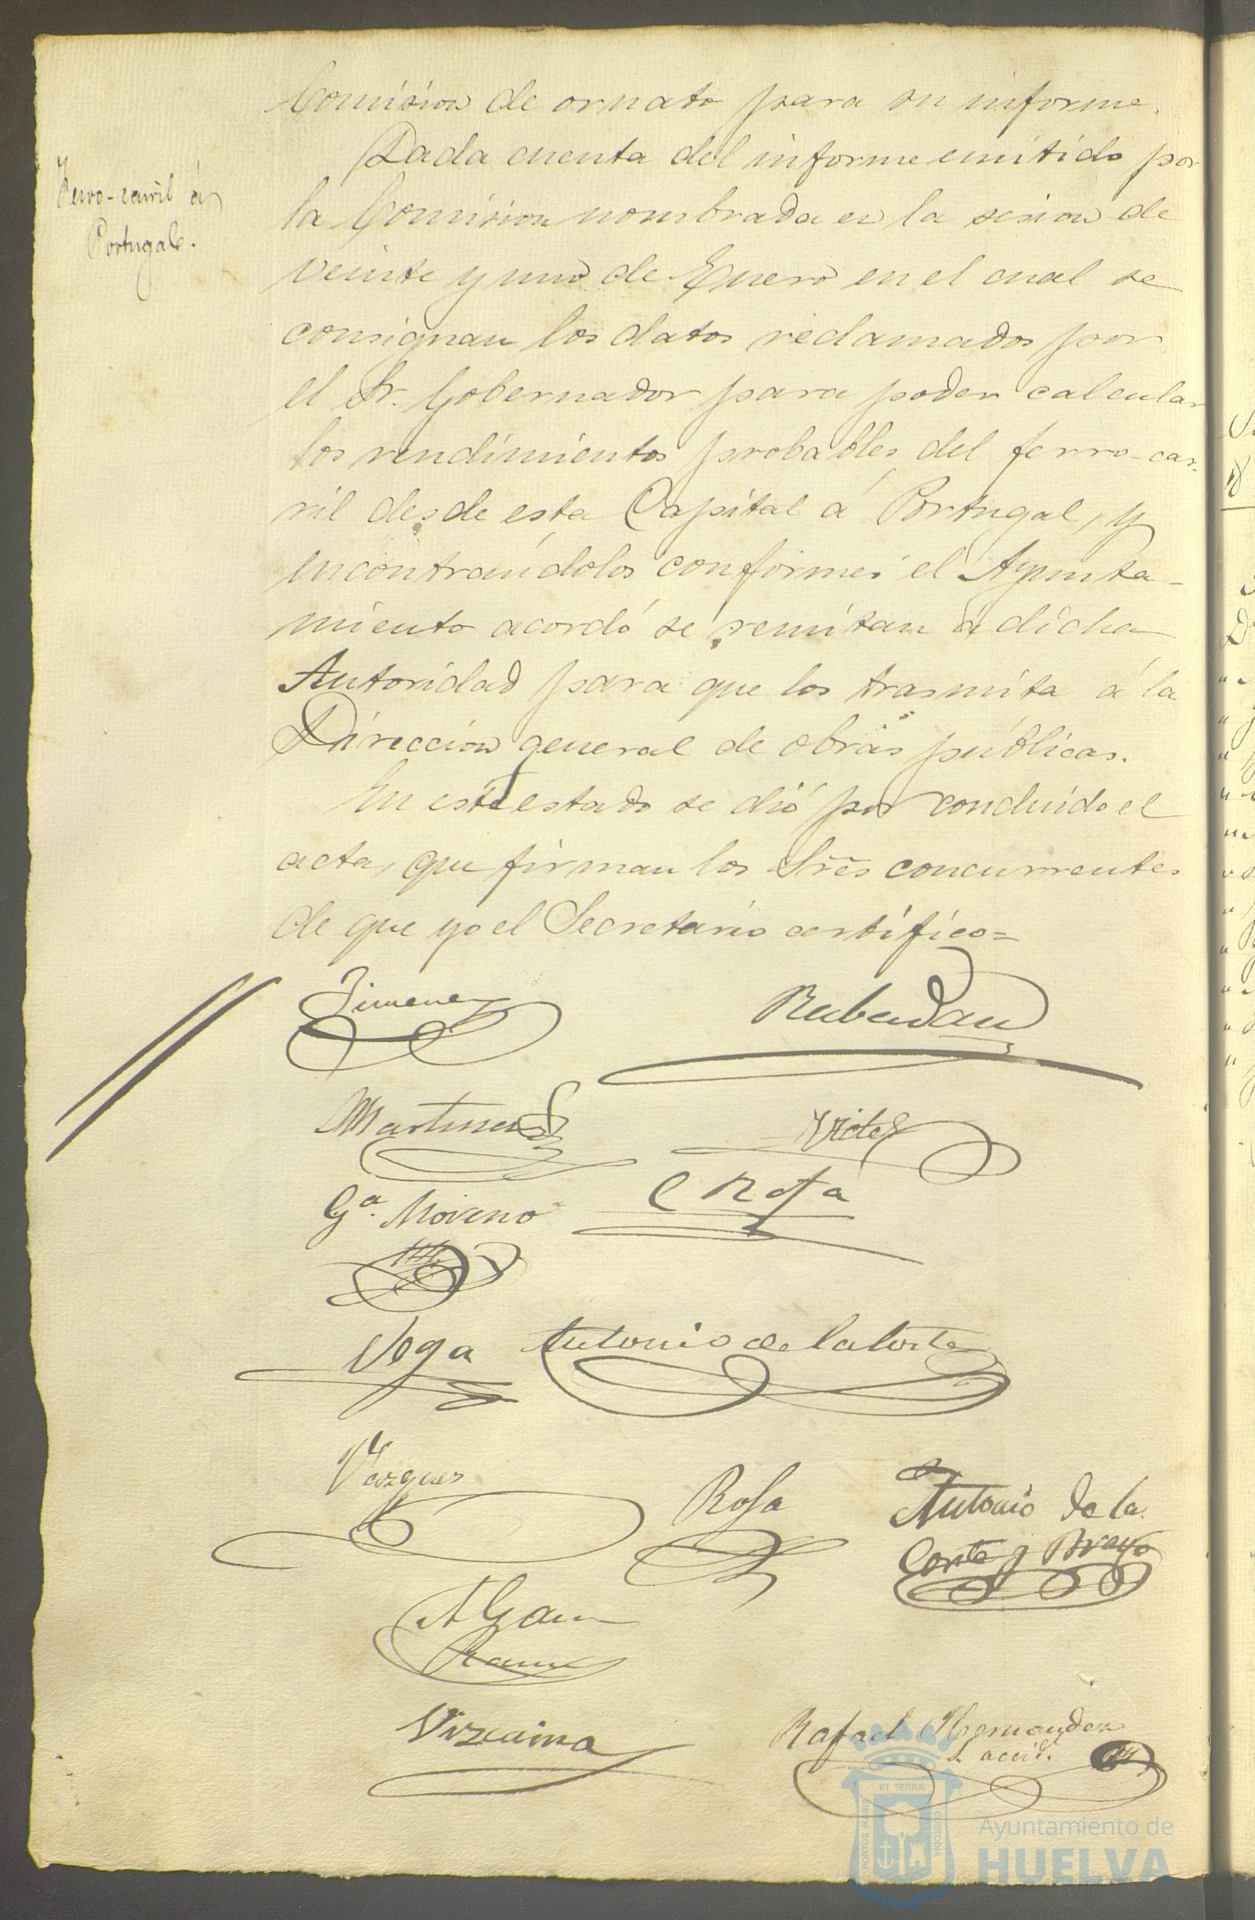 Comision de ornato para su informe.
Ferro-carril á
Portugal.
Dada cuenta del informe emitido por
la Comision nombrada en la sesion de
veinte y uno de Enero en el cual se
consignan los datos reclamados por
el Sr. Gobernador para poder calcular
los rendimientos probables del ferro-car-
ril desde esta Capital á Portugal, y
encontrandolos conformes el Ayunta-
miento acordó se remitan á dicha
Autoridad para que los trasmita á la
Direccion general de obras públicas.
En este estado se dió por concluido el
acta, que firman los Sres concurrentes
de que yo el Secretario certifico=
Jimenez
Martinez
Gª. Moreno
C Rosa
Vega
Antonio de la Corte
Vazquez
Rosa
Antonio de la
Corte y Bravo
A Garcia
Ramos
Vizcaino
Rafael Hernandez
S. accid.
PORTUS MARIS
ET TERRÆ
CUSTODIA
Ayuntamiento de
HUELVA